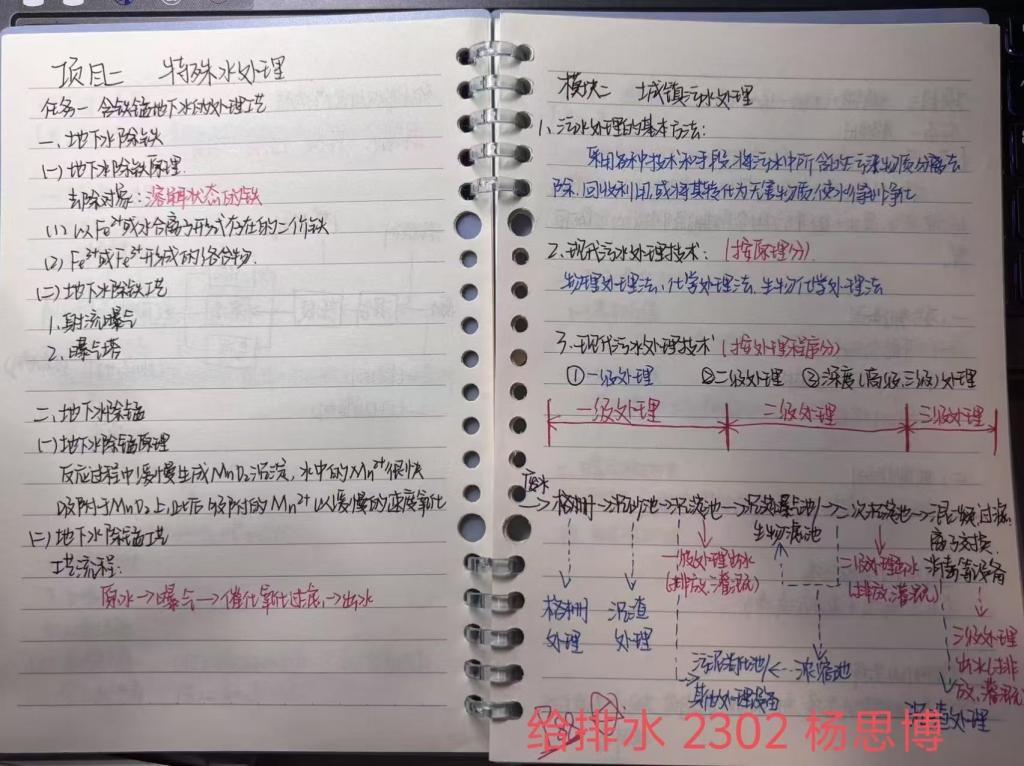 项目二 特殊水处理
任务一 含铁锰地下水的处理工艺
一、地下水除铁
(一)地下水除铁原理
去除对象:溶解状态的铁
(1)以Fe²⁺或水合离子形式存在的二价铁
(2)Fe²⁺或Fe³⁺形成的络合物.
(二)地下水除铁工艺
1.射流曝气
2.曝气塔
二、地下水除锰
(一)地下水除锰原理
反应过程中缓慢生成MnO₂沉淀,水中的Mn²⁺很快
吸附于MnO₂上,此后吸附的Mn²⁺以缓慢的速度氧化
(二)地下水除锰工艺
工艺流程:
原水→曝气→催化氧化过滤→出水
模块二 城镇污水处理
1.污水处理的基本方法:
采用各种技术和手段,将污水中所含的污染物质分离去
除、回收利用,或将其转化为无害物质,使水得到净化
2.现代污水处理技术:(按原理分).
物理处理法、化学处理法、生物化学处理法
3.现代污水处理技术(按处理程度分)
①一级处理 ②二级处理 ③深度(高级、三级)处理
一级处理 二级处理 三级处理
废水
→格栅→沉砂池→沉淀池→活性污泥曝气池/→二次沉淀池→混凝、过滤、
生物滤池 离子交换、
一级处理出水 二级处理出水 消毒等设备
(排放、灌溉) (排放、灌溉)
格栅 沉渣
处理 处理
三级处理
污泥消化池/←浓缩池 出水(排
其他处理设备 放、灌溉)
沉渣处理
给排水 2302 杨思博